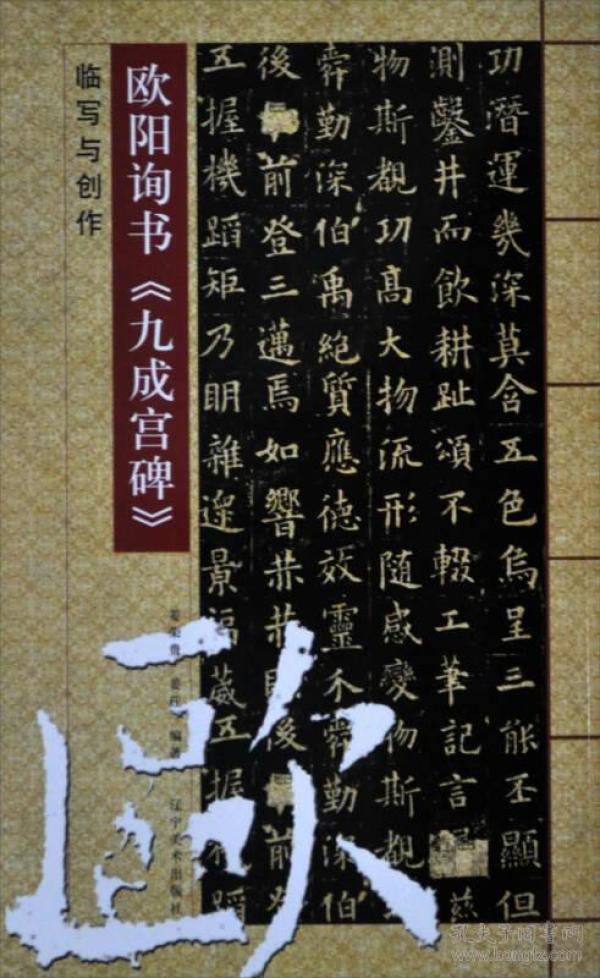 临写与创作
欧阳询书《九成宫碑》
功潛運幾深莫含五色烏呈三能丕顯但
測鑿井而飲耕趾頌不輟工筆記言慈
物斯觀功高大物流形隨感變物斯觀
舜勤深伯禹絕質應德效靈不舜勤深伯
後前登三邁焉如響後前
五握機蹈矩乃眀雜遝景福葳五握蹈
编著
辽宁美术出版社
歐
孔夫子旧书网
www.kongfz.com